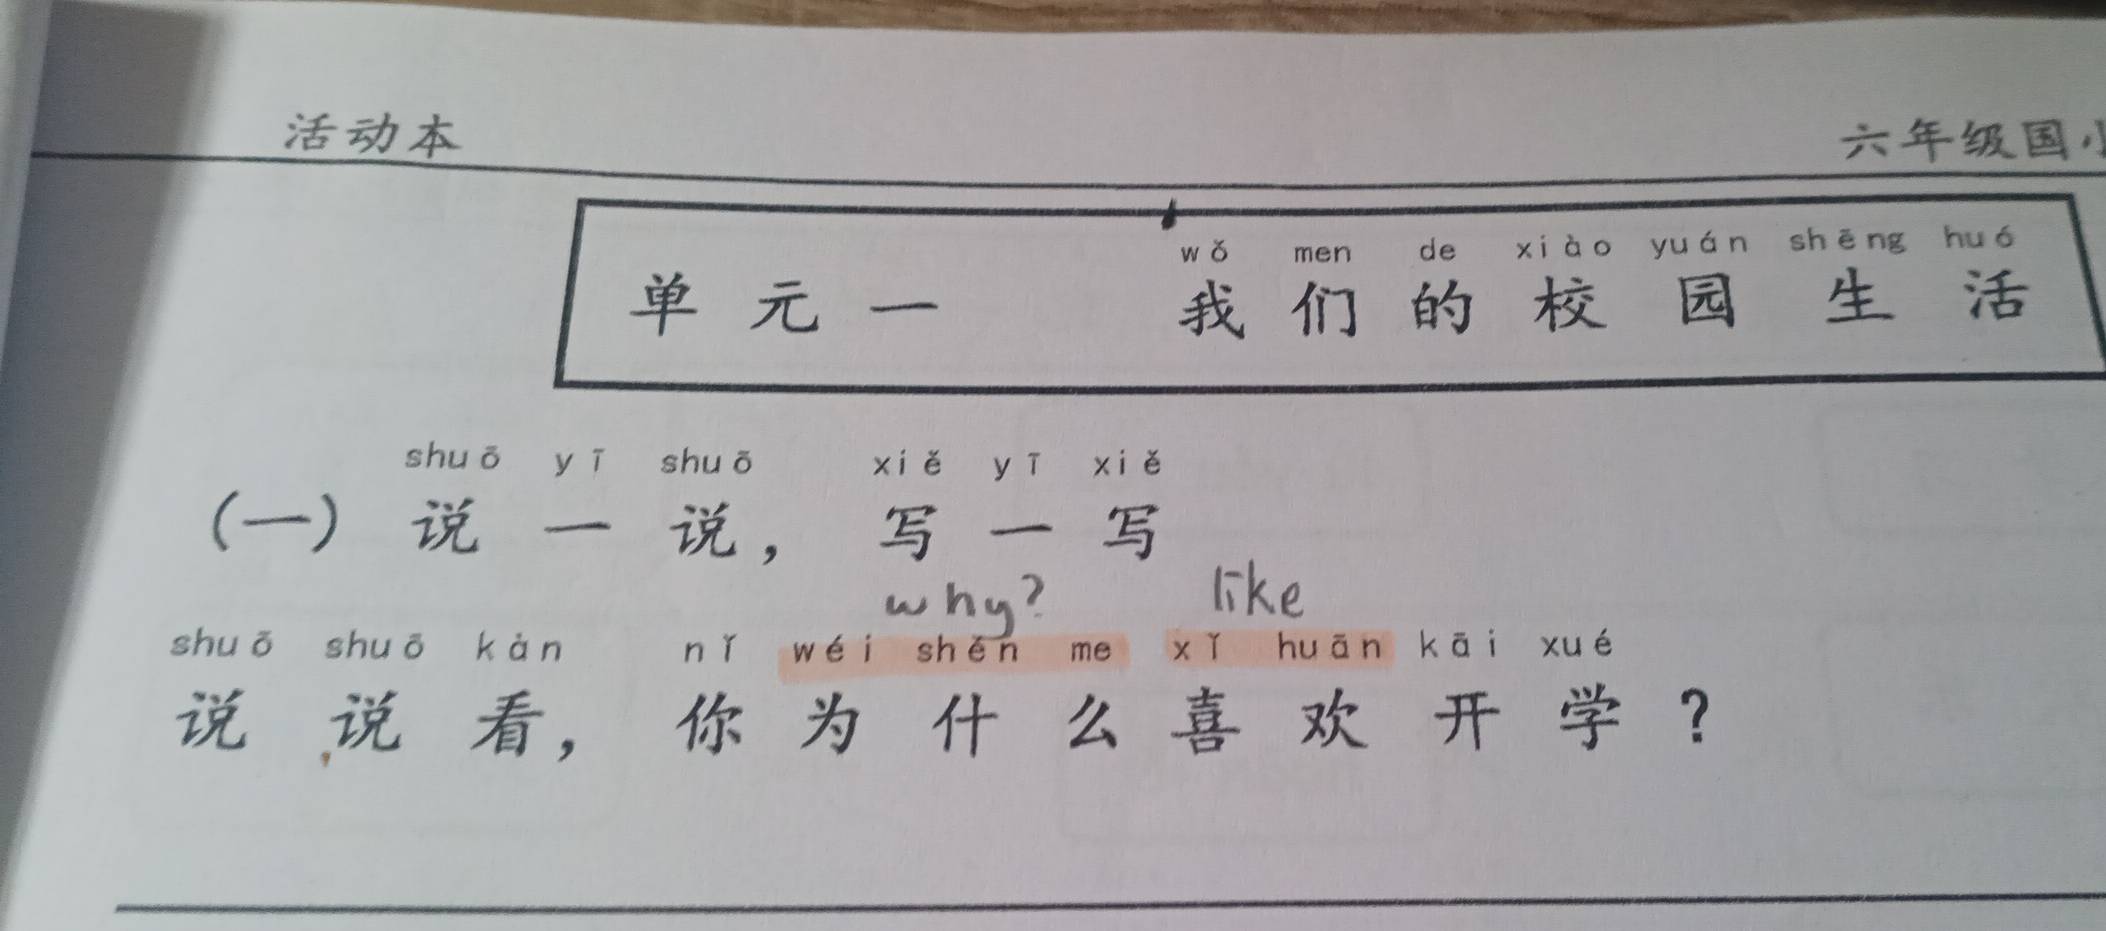 活动本
六年级国小
wǒ men de xiào yuán shēng huó
单元一 我们的校园生活
shuō yī shuō xiě yī xiě
(一) 说一说，写一写
why? like
shuō shuō kàn nǐ wéi shěn me xǐ huān kāi xué
说说看，你为什么喜欢开学？